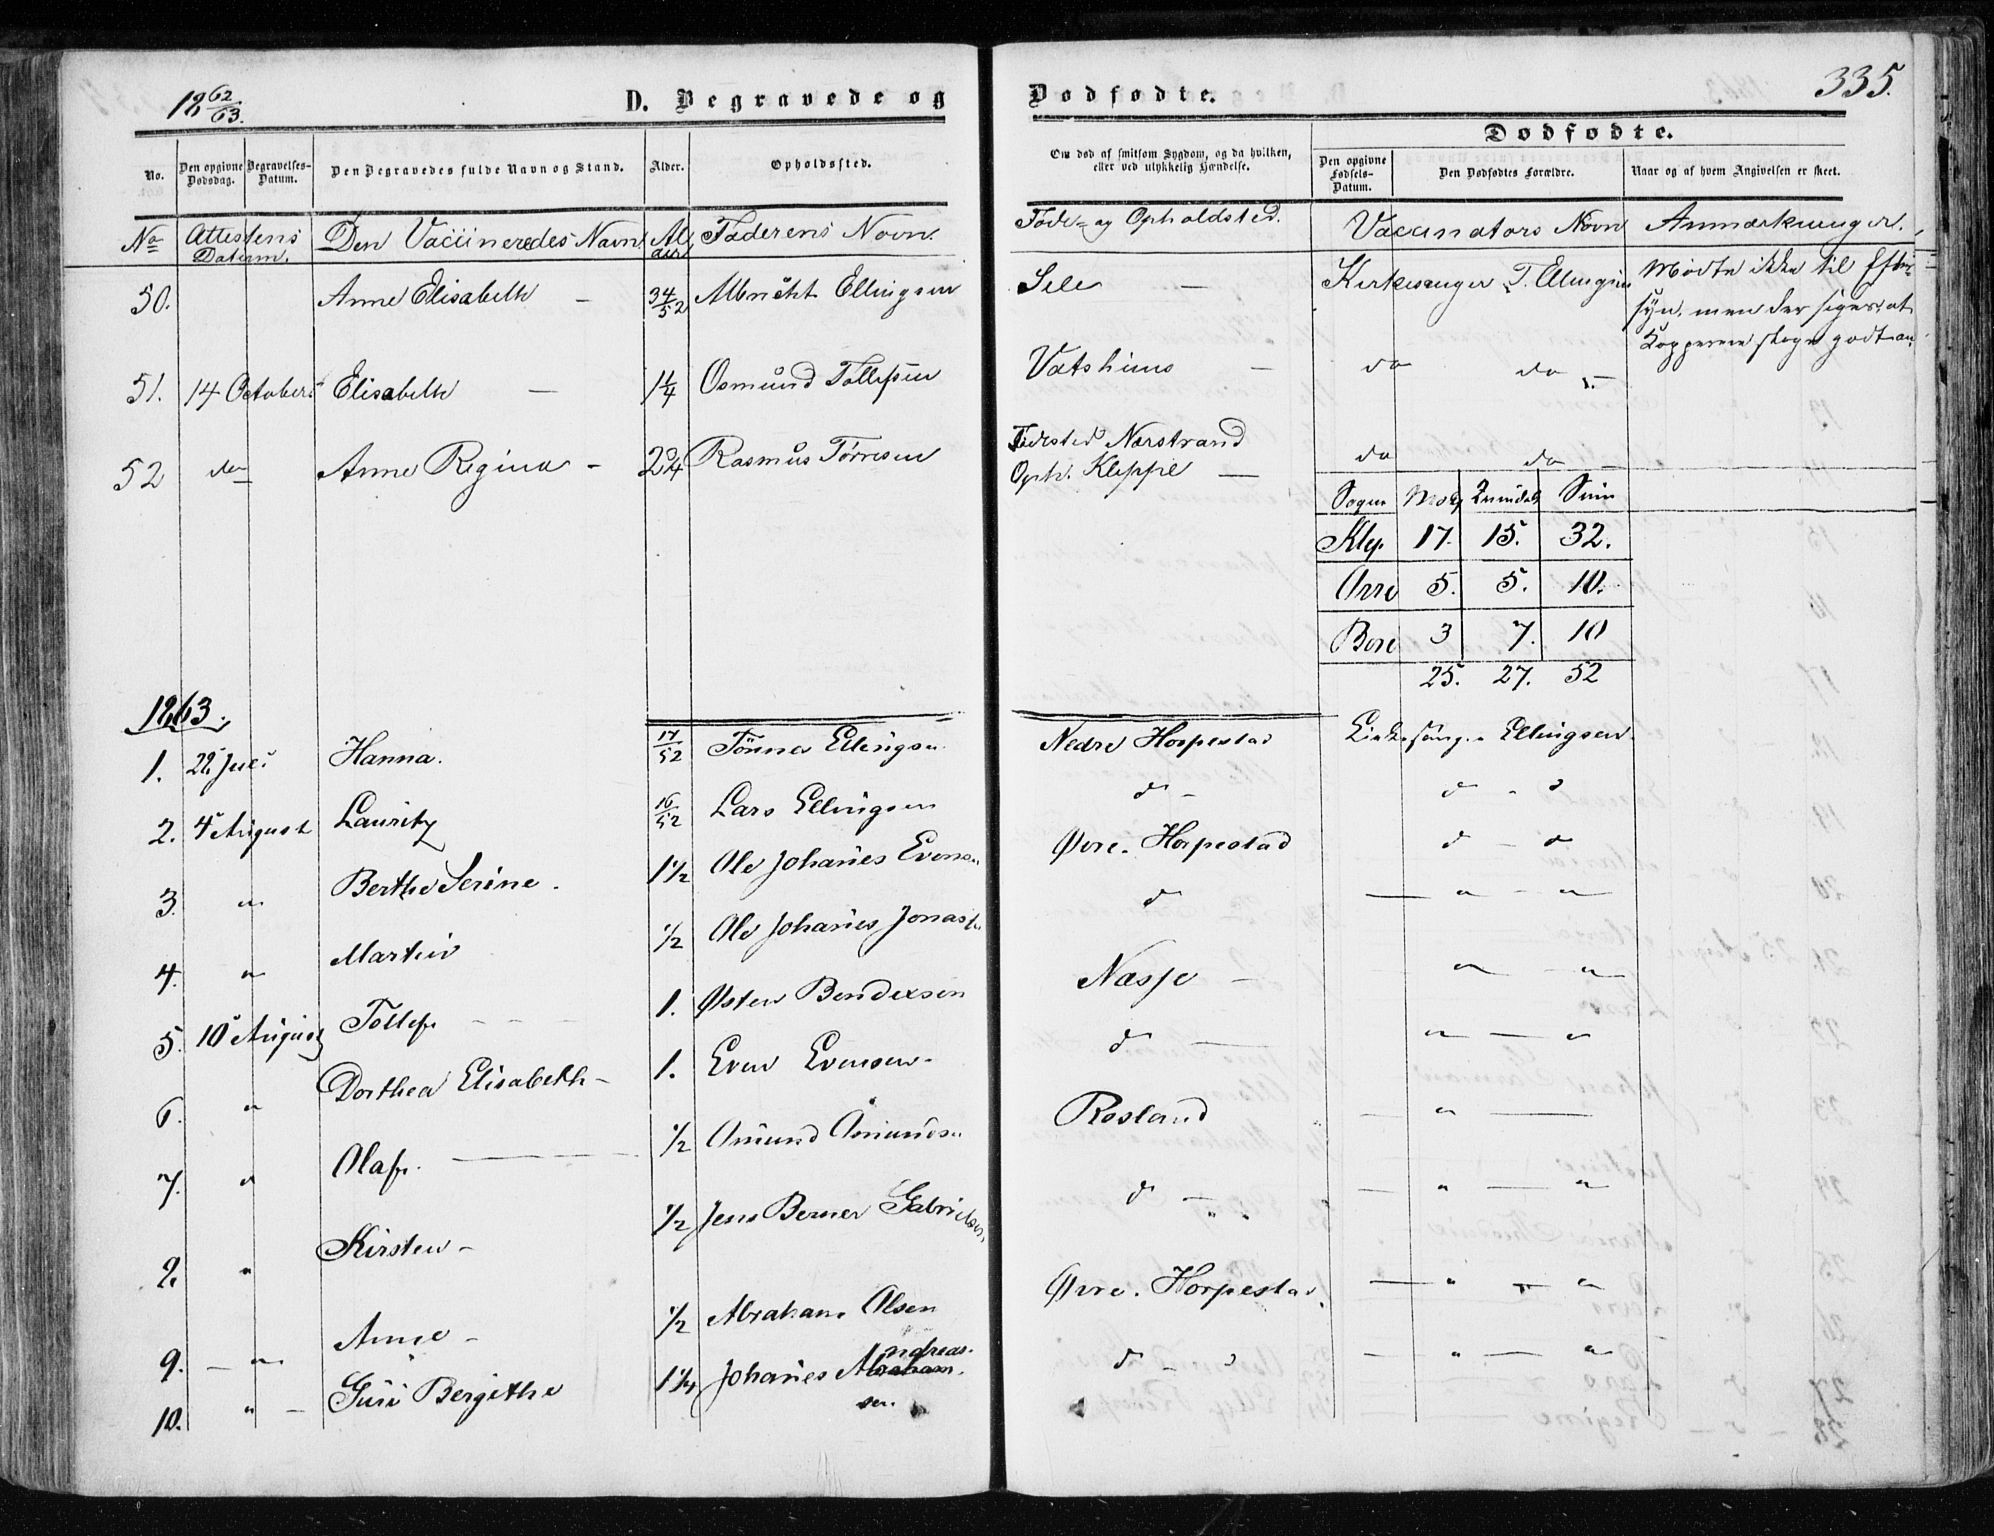 18 62/63.
D. Begravede og
Dødfødte.
335.
Dødfødte.
No.
Den opgivne Dødsdag.
Begravelses-Datum.
Den Begravedes fulde Navn og Stand.
Alder.
Opholdssted.
Om død af smitsom Sygdom, og da hvilken,
eller ved ulykkelig Hændelse.
Den opgivne Fødsels-Datum.
Den Dødfødtes Forældre.
Naar og af hvem Angivelsen er skeet.
No Attestens Datum. Den Vaccineredes Navn Alder Faderens Navn. Føde- og Opholdsted. Vaccinators Navn Anmærkninger.
50. Anne Elisabeth - 34/52 Albricht Ellingsen Sele - Kirkesanger T. Ellingsen Mødte ikke til Efter-
syn, men der siges, at
Kopperne slog godt an
51. 14 October Elisabeth - 1 1/4 Osmund Tollefsen Vatshuus - do do -
52 do Anne Regina - 2 3/4 Rasmus Tørresen Fødested Nærstrand
Oph. Kleppe - do do -
Sogn Mskj Qvindekj Sum
Klep. 17. 15. 32.
Orre 5. 5. 10.
Bore 3 7. 10
25. 27. 52
1863.
1. 22 Juli Hanna. 17/52 Tønnes Ellingsen Nedre Horpestad Kirkesanger Ellingsen.
2. 4 August Lauritz 16/52 Lars Ellingsen d - d - d
3. " Berthe Serine. 1 1/2 Ole Johannes Evensen Øvre. Horpestad d - d
4. " Martin 1/2 Ole Johannes Jonassen d - " - "
5. 10 August Tollef - - - 1. Østen Bendixsen Næsje - " - "
6. " Dorthea Elisabeth - 1. Even Evensen - d - " - "
7. " Olaf. - 1/2 Omund Omundsen Rosland - " -
8. " Kirsten - 1/2 Jens Berner Gabrielsen d - " " - " - "
9. - " Anne - 1/2 Abraham Olsen Øvre. Horpestad. - " - "
10. " - Guri Bergithe 1 1/4 Johannes Andreas-
sen. d - d - " - "